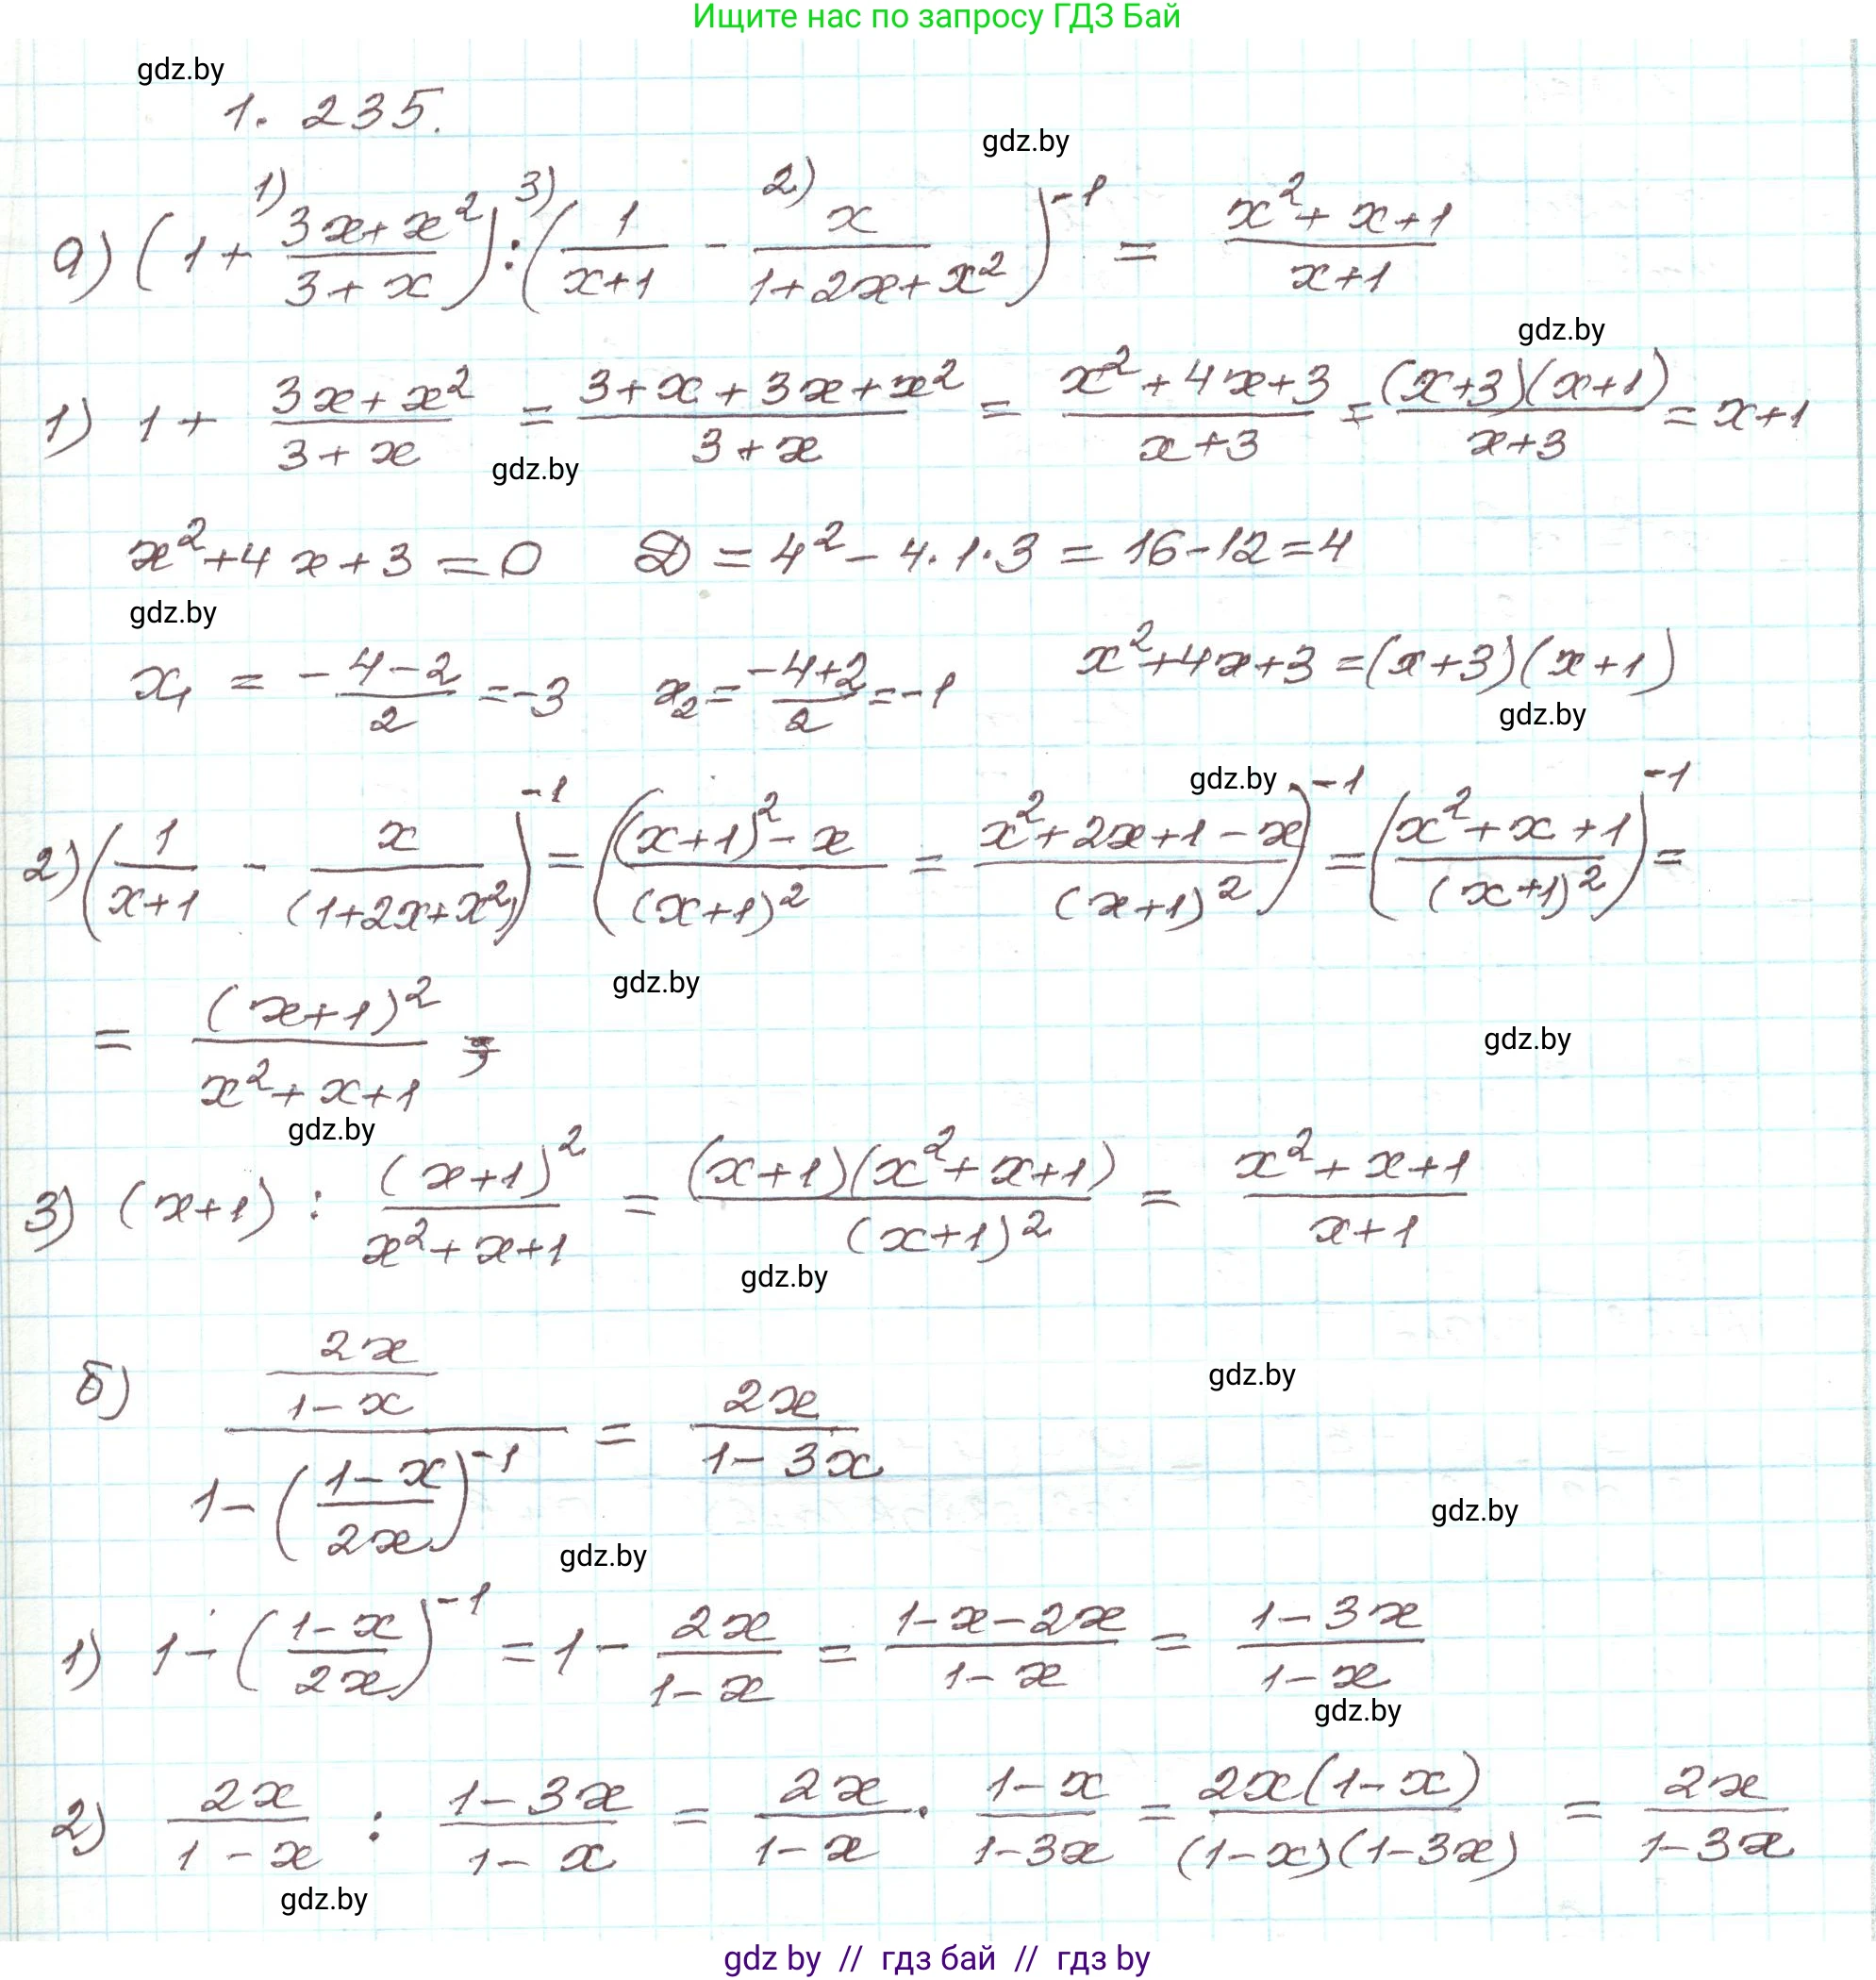 Ищите нас по запросу ГДЗ Бай
gdz.by
1. 235.
gdz.by
1) 3) 2)
а) (1 + (3x+x²)/(3+x)) : (1/(x+1) - x/(1+2x+x²))⁻¹ = (x²+x+1)/(x+1)
gdz.by
1) 1 + (3x+x²)/(3+x) = (3+x+3x+x²)/(3+x) = (x²+4x+3)/(x+3) = ((x+3)(x+1))/(x+3) = x+1
gdz.by
x²+4x+3=0 D = 4²-4·1·3 = 16-12=4
gdz.by
x₁ = -(4-2)/2 = -3 x₂ = (-4+2)/2 = -1 x²+4x+3=(x+3)(x+1)
gdz.by
gdz.by
2) (1/(x+1) - x/(1+2x+x²))⁻¹ = (((x+1)²-x)/(x+1)² = (x²+2x+1-x)/(x+1)²)⁻¹ = ((x²+x+1)/(x+1)²)⁻¹ =
gdz.by
= (x+1)²/(x²+x+1) ;
gdz.by
gdz.by
3) (x+1) : (x+1)²/(x²+x+1) = ((x+1)(x²+x+1))/(x+1)² = (x²+x+1)/(x+1)
gdz.by
б) (2x/(1-x))/(1-((1-x)/2x)⁻¹) = 2x/(1-3x)
gdz.by
gdz.by
gdz.by
1) 1-((1-x)/2x)⁻¹ = 1 - 2x/(1-x) = (1-x-2x)/(1-x) = (1-3x)/(1-x)
gdz.by
2) 2x/(1-x) : (1-3x)/(1-x) = 2x/(1-x) · (1-x)/(1-3x) = (2x(1-x))/((1-x)(1-3x)) = 2x/(1-3x)
gdz.by
gdz by // гдз бай // гдз by